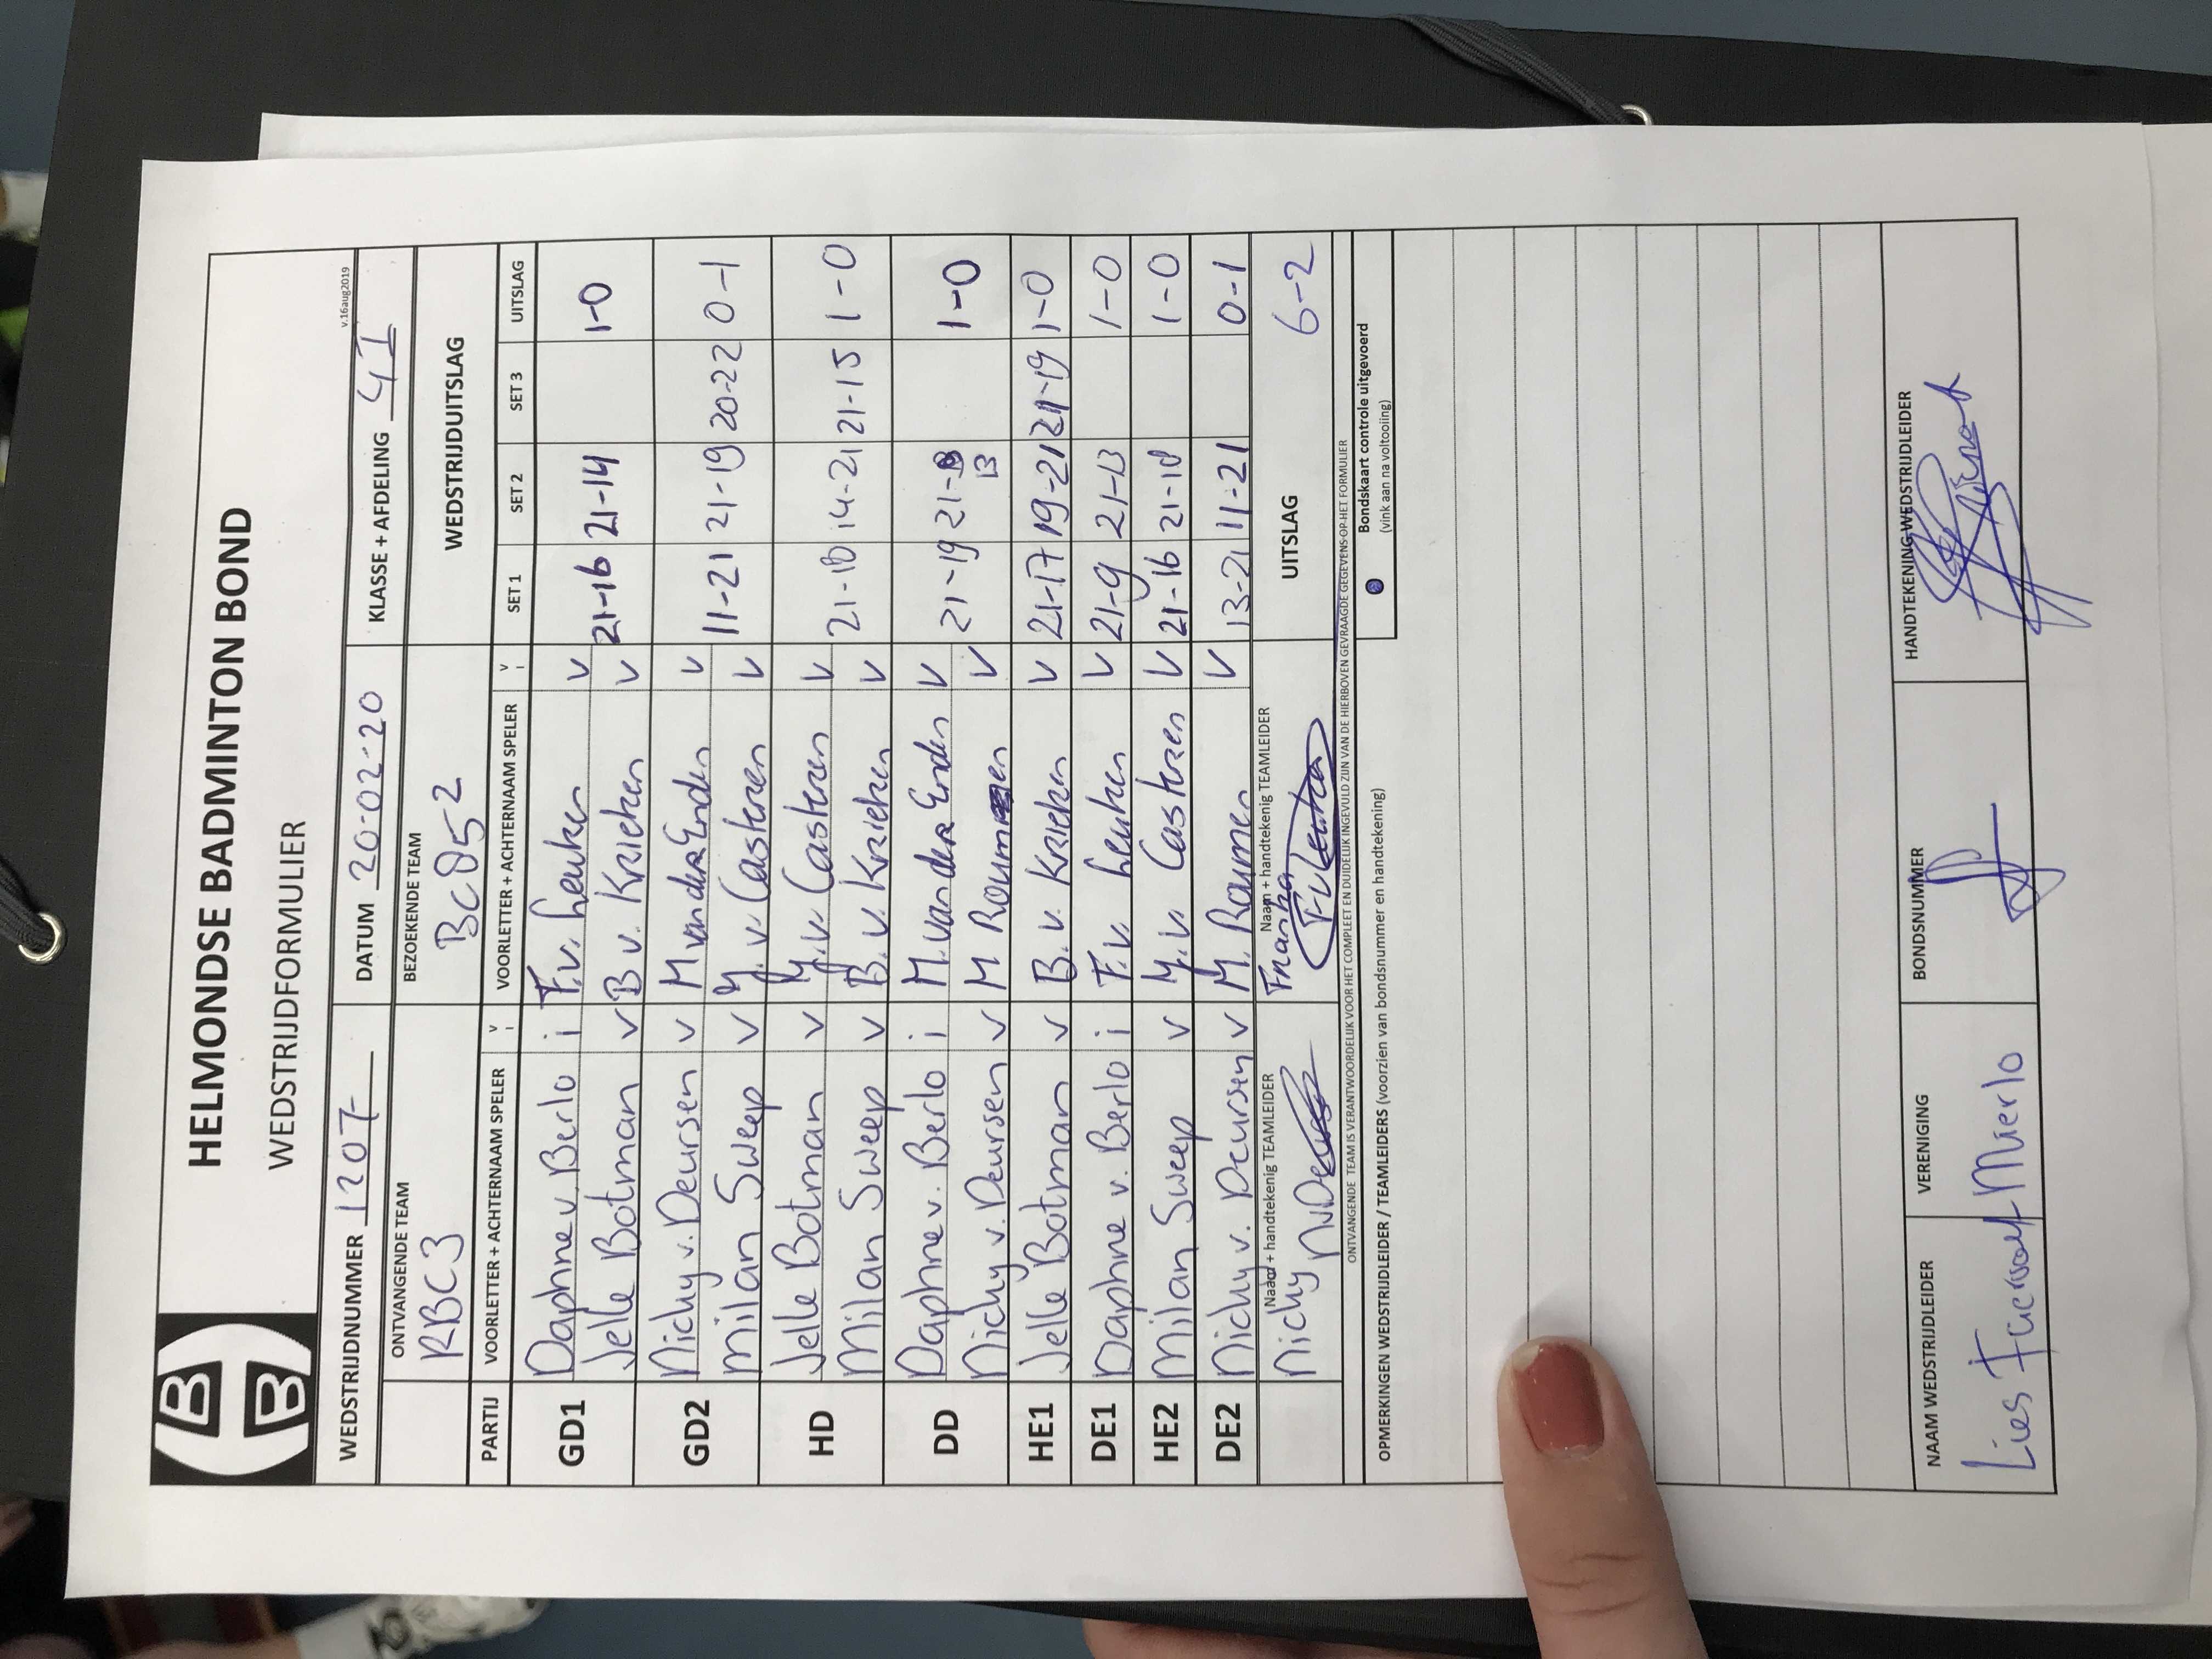 HELMONDSE BADMINTON BOND
WEDSTRIJDFORMULIER
v.16aug2019
WEDSTRIJDNUMMER 1207 DATUM 20-02-20 KLASSE + AFDELING 4I
ONTVANGENDE TEAM BEZOEKENDE TEAM WEDSTRIJDUITSLAG
RBC3 BC85-2
PARTIJ VOORLETTER + ACHTERNAAM SPELER V I VOORLETTER + ACHTERNAAM SPELER V I SET 1 SET 2 SET 3 UITSLAG
GD1 Daphne v. Berlo i F.v. Leuken v
Jelle Botman v B v. Krieken v 21-16 21-14 1-0
GD2 Nichy v. Deursen v M van der Enden v
Milan Sweep v Y. v. Casteren v 11-21 21-19 20-22 0-1
HD Jelle Botman v Y. v. Casteren v
Milan Sweep v B. v. Krieken v 21-18 14-21 21-15 1-0
DD Daphne v. Berlo i M. van der Enden v
Nichy v. Deursen v M Roumen v 21-19 21-13 1-0
HE1 Jelle Botman v B. v. Krieken v 21-17 19-21 21-19 1-0
DE1 Daphne v. Berlo i F. v. Leuken v 21-9 21-13 1-0
HE2 Milan Sweep v Y. v. Casteren v 21-16 21-18 1-0
DE2 Nichy v. Deursen v M. Roumen v 13-21 11-21 0-1
Naam + handtekenig TEAMLEIDER Naam + handtekenig TEAMLEIDER UITSLAG 6-2
Nichy NvDeursen F v Leuken
ONTVANGENDE TEAM IS VERANTWOORDELIJK VOOR HET COMPLEET EN DUIDELIJK INGEVULD ZIJN VAN DE HIERBOVEN GEVRAAGDE GEGEVENS OP HET FORMULIER
OPMERKINGEN WEDSTRIJDLEIDER / TEAMLEIDERS (voorzien van bondsnummer en handtekening)
Bondskaart controle uitgevoerd
(vink aan na voltooiing)
NAAM WEDSTRIJDLEIDER VERENIGING BONDSNUMMER HANDTEKENING WEDSTRIJDLEIDER
Lies Mierlo